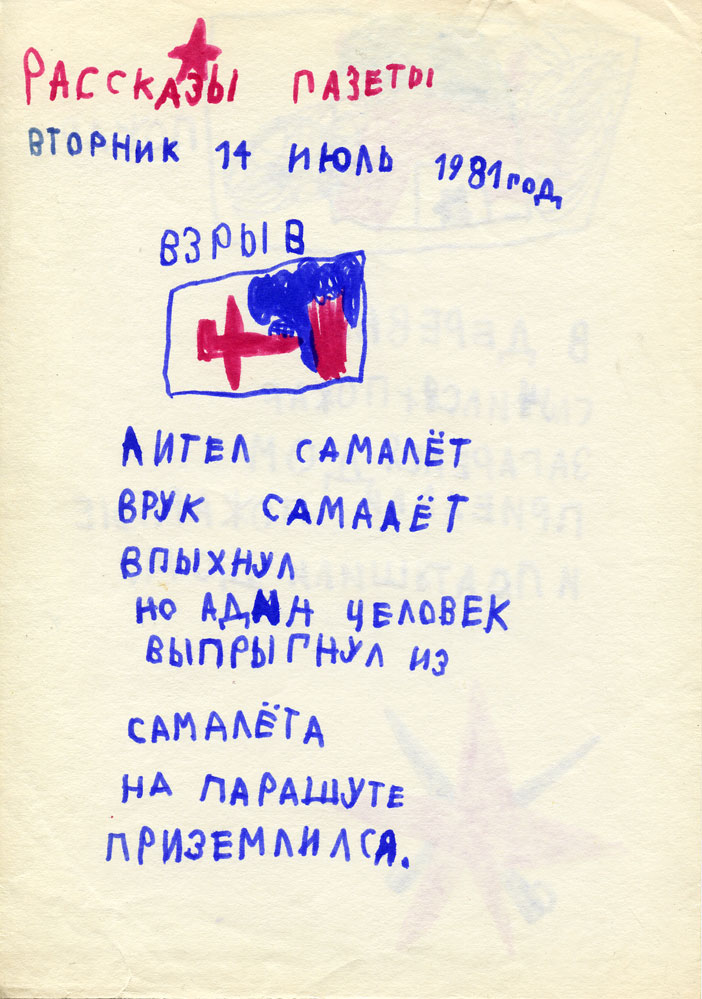 РАССКАЗЫ ПАЗЕТЫ
ВТОРНИК 14 ИЮЛЬ 1981 ГОД
ВЗРЫВ
ЛИТЕЛ САМАЛЁТ
ВРУК САМАЛЁТ
ВПЫХНУЛ
НО АДИН ЧЕЛОВЕК
ВЫПРЫГНУЛ ИЗ
САМАЛЁТА
НА ПАРАШУТЕ
ПРИЗЕМЛИЛСЯ.